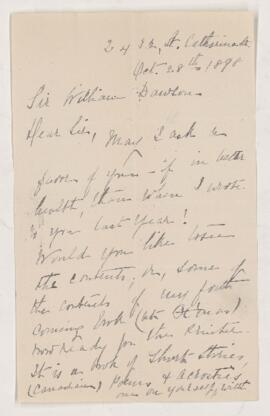 St. Catherine St.
Oct. 28th 1898
Sir William Dawson
Dear Sir, May I ask a
favor of you - if in better
health, than when I wrote
to you last year!
Would you like to see
the contents, or, some of
the contents of my forth
coming Book (at Xmas)
now ready for the Printer.
It is a book of Short stories
(Canadian) Poems & acrostics
one on yourself, with